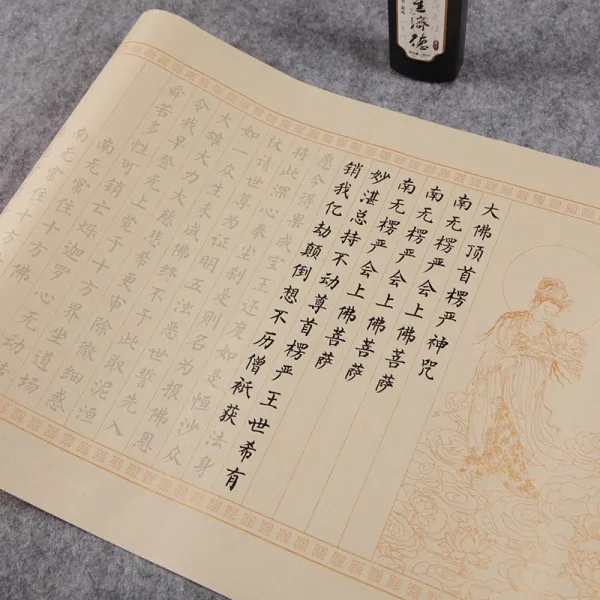 大佛顶首楞严神咒
南无楞严会上佛菩萨
南无楞严会上佛菩萨
南无楞严会上佛菩萨
妙湛总持不动尊首楞严王世希有
销我亿劫颠倒想不历僧祇获法身
愿今得果成宝王还度如是恒沙众
将此深心奉尘刹是则名为报佛恩
伏请世尊为证明五浊恶世誓先入
如一众生未成佛终不于此取泥洹
大雄大力大慈悲希更审除微细惑
令我早登无上觉于十方界坐道场
舜若多性可销亡烁迦罗心无动转
南无常住十方佛
南无常住十方
濟德